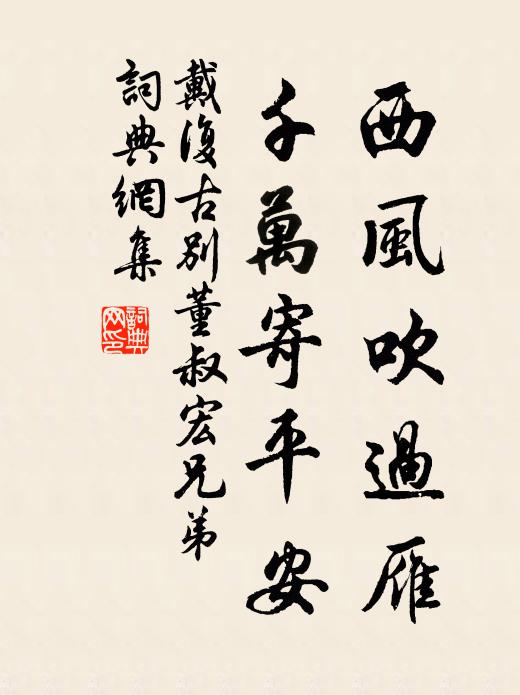 西風吹過雁
千萬寄平安
戴復古別董叔宏兄弟
詞典網集
詞典网印